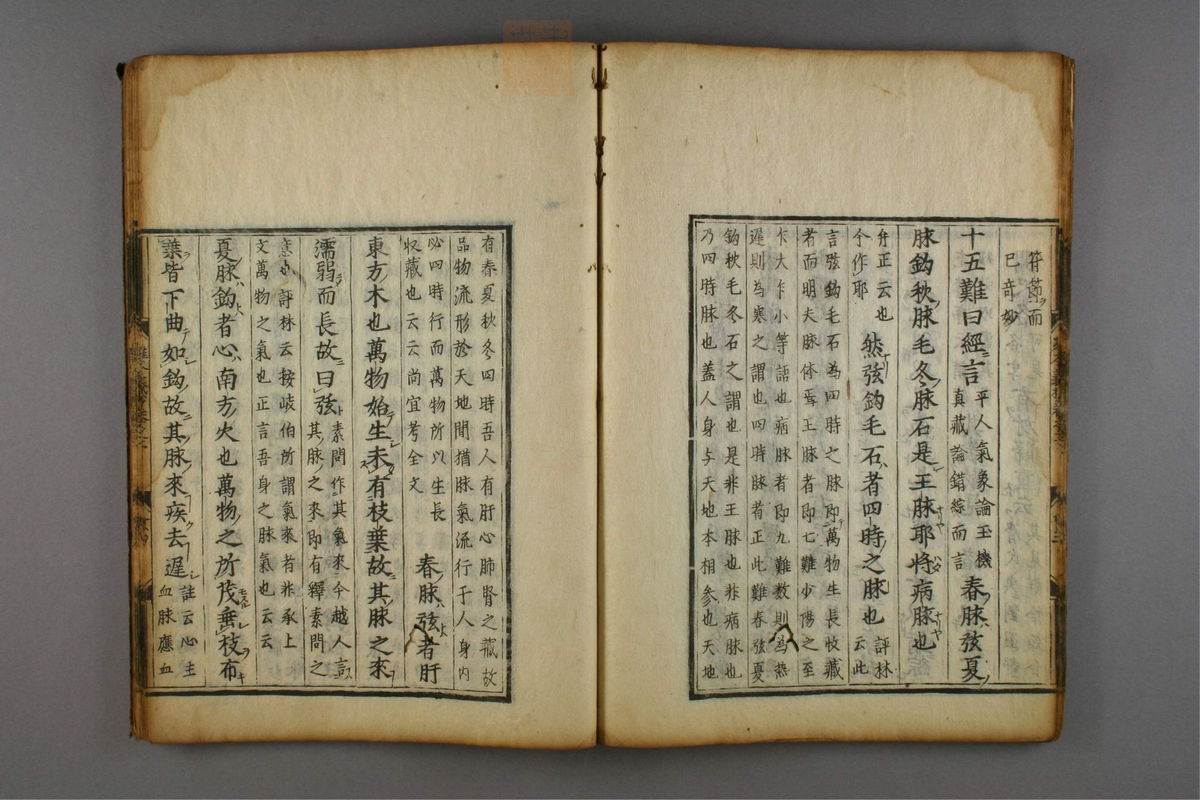 符節而
已奇妙
十五難曰經言
平人氣象論玉機
真藏論錯綜而言
春脉弦夏
脉鈎秋脉毛冬脉石是王脉耶将病脉也
弁正云也
今作耶
然弦鈎毛石者四時之脉也
評林
云此
言弦鈎毛石為四時之脉即萬物生長收藏
者而明夫脉体焉王脉者即七難少陽之至
乍大乍小等語也病脉者即九難数則為热
遲則為寒之謂也四時脉者正此難春弦夏
鈎秋毛冬石之謂也是非王脉也非病脉也
乃四時脉也蓋人身与天地本相參也天地
有春夏秋冬四時吾人有肝心肺腎之藏故
品物流形於天地間猶脉氣流行于人身内
必四時行而萬物所以生長
収藏也云云尚宜考全文
春脉弦者肝
東方木也萬物始生未有枝葉故其脉之來
濡弱而長故曰弦
素問作其氣來今越人言
其脉之來即有釋素問之
意也評林云按岐伯所謂氣來者非承上
文萬物之氣也正言吾身之脉氣也云云
夏脉鈎者心南方火也萬物之所茂垂枝布
葉皆下曲如鈎故其脉來疾去遲
註云心主
血脉應血